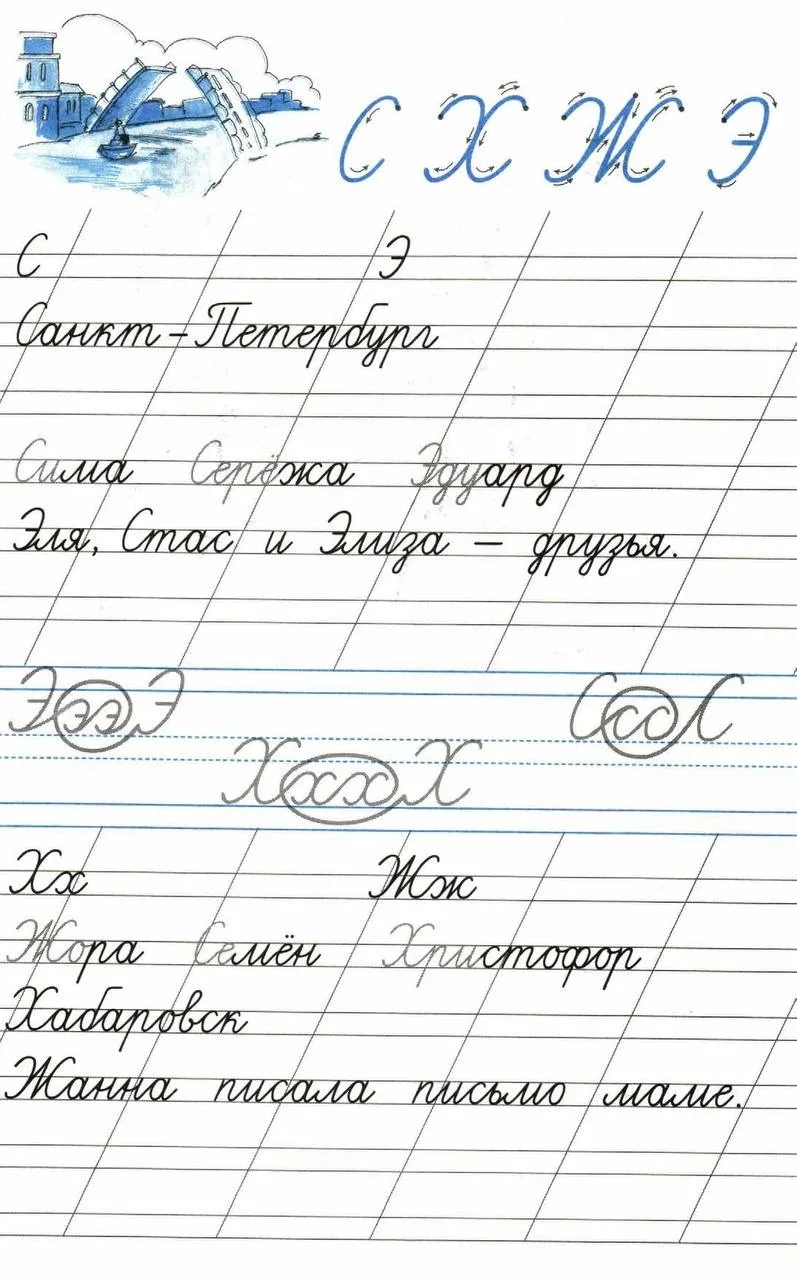 С Х Ж Э
С Э
Санкт-Петербург
Сима Серёжа Эдуард
Эля, Стас и Элиза – друзья.
ЭээЭ СссС
ХххХ
Хх Жж
Жора Семён Христофор
Хабаровск
Жанна писала письмо маме.